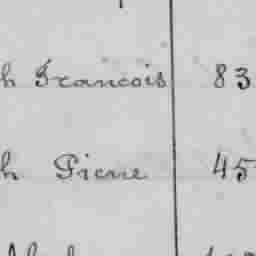 h François 83
h Pierre 45